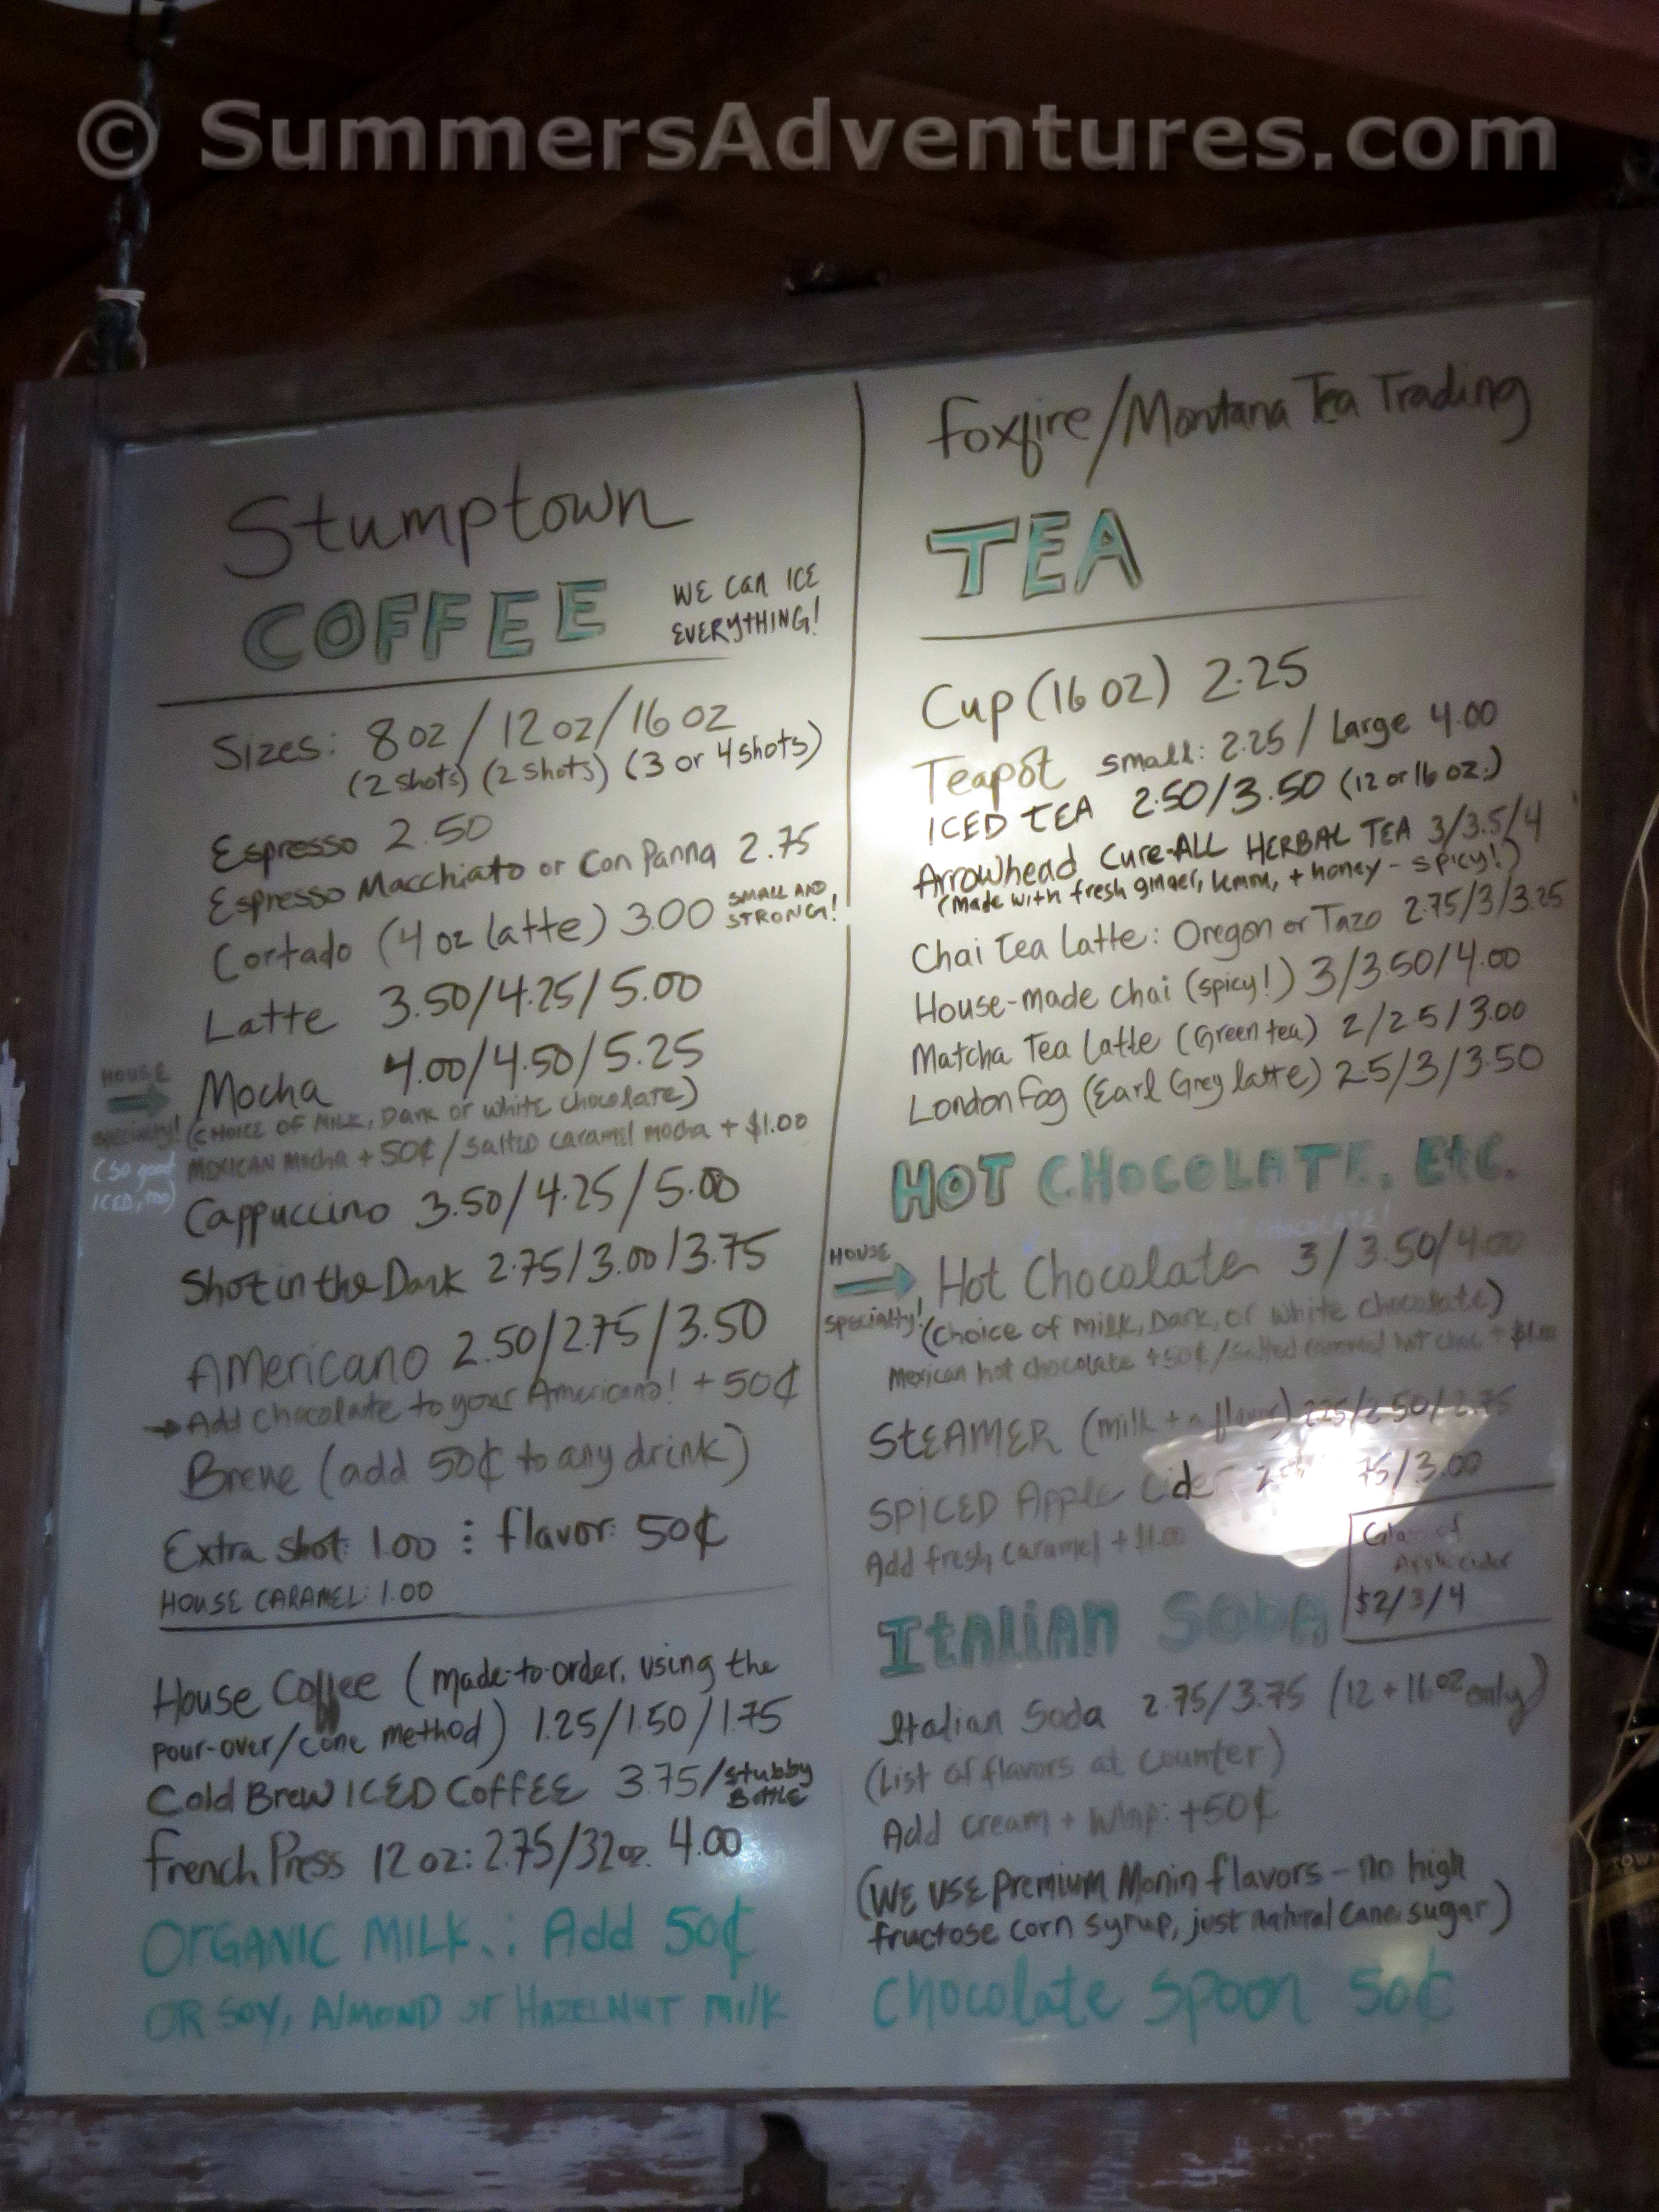 © SummersAdventures.com
Stumptown
COFFEE
WE CAN ICE
EVERYTHING!
Sizes: 8 oz / 12 oz / 16 oz
(2 shots) (2 shots) (3 or 4 shots)
Espresso 2.50
Espresso Macchiato or Con Panna 2.75
Cortado (4 oz latte) 3.00 SMALL AND STRONG!
Latte 3.50/4.25/5.00
HOUSE
specialty!
(so good
ICED, too)
Mocha 4.00/4.50/5.25
(CHOICE OF MILK, Dark or white chocolate)
MEXICAN Mocha + 50¢ / Salted caramel mocha + $1.00
Cappuccino 3.50/4.25/5.00
Shot in the Dark 2.75/3.00/3.75
Americano 2.50/2.75/3.50
→ Add chocolate to your Americano! + 50¢
Breve (add 50¢ to any drink)
Extra shot: 1.00 : flavor: 50¢
HOUSE CARAMEL: 1.00
House Coffee (made-to-order, using the
pour-over/cone method) 1.25/1.50/1.75
Cold Brew ICED COFFEE 3.75/stubby Bottle
French Press 12 oz: 2.75/32 oz. 4.00
ORGANIC MILK.: Add 50¢
OR SOY, ALMOND or HAZELNUT milk
Foxfire/Montana Tea Trading
TEA
Cup (16 oz) 2.25
Teapot small: 2.25 / Large 4.00
ICED TEA 2.50/3.50 (12 or 16 oz.)
Arrowhead Cure-ALL HERBAL TEA 3/3.5/4
(made with fresh ginger, lemon, + honey - spicy!)
Chai Tea Latte: Oregon or Tazo 2.75/3/3.25
House-made chai (spicy!) 3/3.50/4.00
Matcha Tea Latte (Green tea) 2/2.5/3.00
London Fog (Earl Grey latte) 2.5/3/3.50
HOT CHOCOLATE, Etc.
HOUSE
specialty!
Hot Chocolate 3/3.50/4.00
(choice of milk, Dark, or white chocolate)
Mexican hot chocolate + 50¢/Salted caramel hot choc + $1.00
STEAMER (milk + a flavor) 2.25/2.50/2.75
SPICED Apple Cider 75/3.00
Add fresh caramel + $1.00
Glass of
Apple cider
$2/3/4
ITALIAN SODA
Italian Soda 2.75/3.75 (12 + 16 oz only)
(List of flavors at counter)
Add cream + whip: +50¢
(WE USE premium Monin flavors - no high
fructose corn syrup, just natural cane sugar)
Chocolate Spoon 50¢